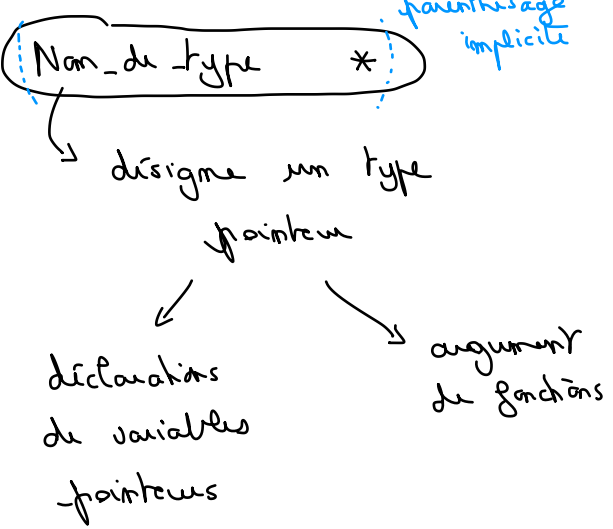 parenthésage
implicite
Nom_de_type *
désigne un type
pointeur
déclarations
de variables
pointeurs
argument
de fonctions